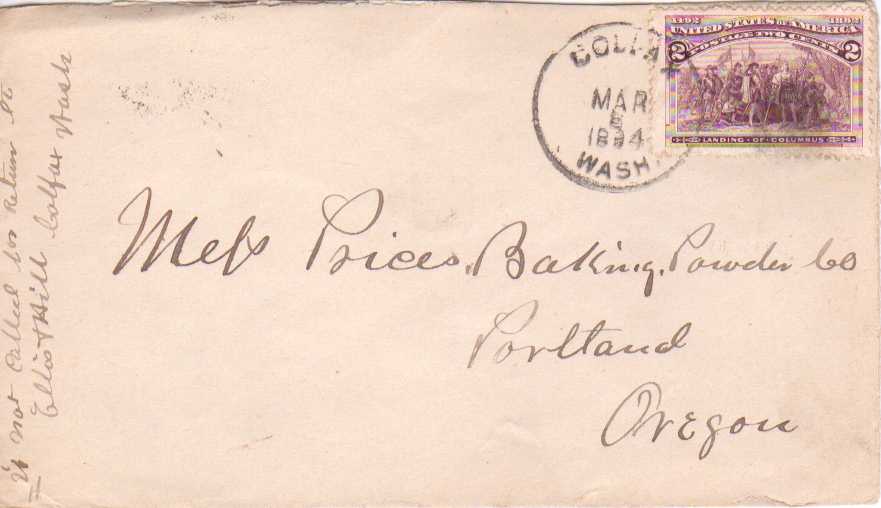 1492 1892
UNITED STATES OF AMERICA
POSTAGE TWO CENTS
2 2
LANDING • OF • COLUMBUS
COLFAX
MAR
5
1894
WASH.
Mess Prices Baking Powder Co
Portland
Oregon
If not Called for Return to
Ellis & Hill Colfax Wash